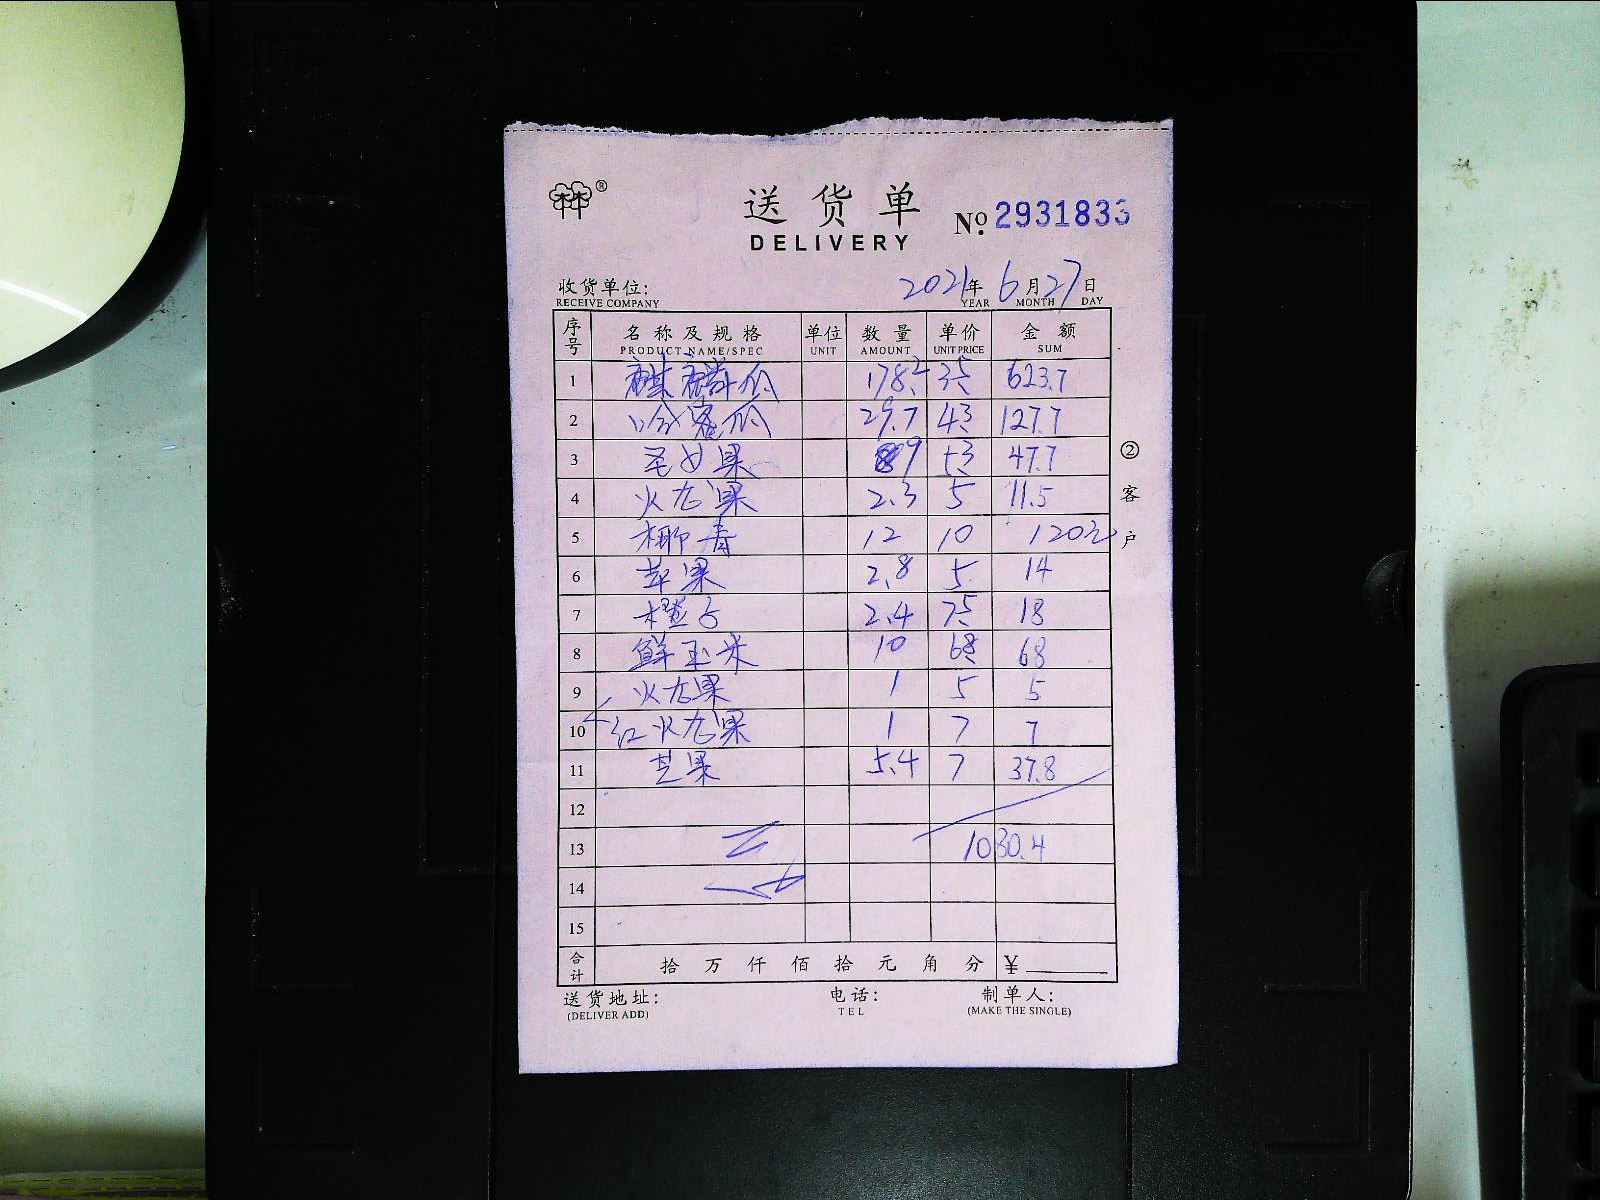 林林®
送货单
DELIVERY
No. 2931833
收货单位:
RECEIVE COMPANY
2021年 6月 27日
YEAR MONTH DAY
序号 名称及规格 单位 数量 单价 金额
PRODUCT NAME/SPEC UNIT AMOUNT UNIT PRICE SUM
1 麒麟瓜 178.2 3.5 623.7
2 哈密瓜 29.7 4.3 127.7
3 圣女果 9 5.3 47.7
4 火龙果 2.3 5 11.5
5 椰青 12 10 120元
6 苹果 2.8 5 14
7 橙子 2.4 7.5 18
8 鲜玉米 10 6.8 68
9 火龙果 1 5 5
10 红火龙果 1 7 7
11 芒果 5.4 7 37.8
12
13 1080.4
14
15
合计 拾 万 仟 佰 拾 元 角 分 ¥
②客户
送货地址: 电话: 制单人:
(DELIVER ADD) TEL (MAKE THE SINGLE)